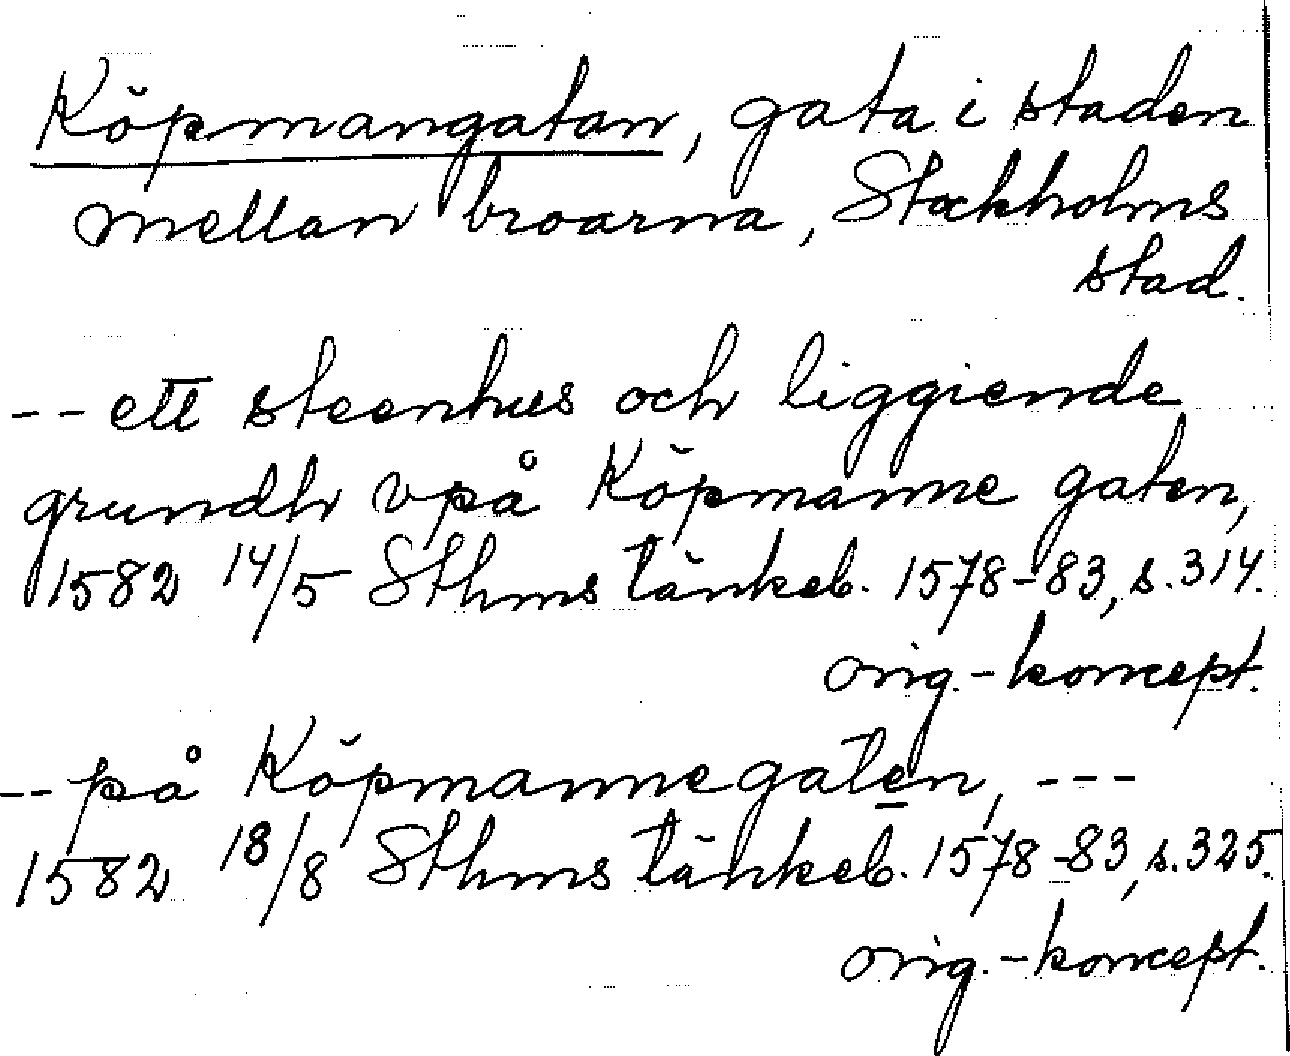 Köpmangatan, gata i staden
mellan broarna, Stockholms
stad.
-- ett steenhus och liggiende
grundh vpå Köpmanne gaten,
1582 14/5 Sthms tänkeb. 1578-83, s. 314.
orig.-koncept.
-- på Köpmannegaten, ---
1582 18/8 Sthms tänkeb. 1578-83, s. 325.
orig.-koncept.